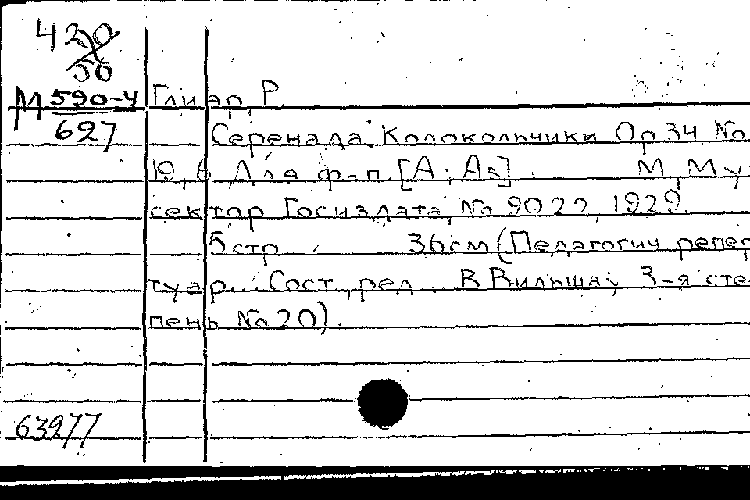 420
56
М 590-4 Глиэр, Р.
627 Серенада. Колокольчики Ор 34 No
19, 6 Для ф-п. [А; As] М, Му
сектор Госиздата, No 9022, 1929.
5 стр. 36 см (Педагогич репер
туар. Сост., ред. В Вильшау 3-я сте
пень No 20).
63977